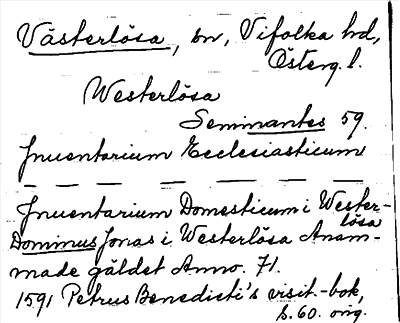 Västerlösa, sn, Vifolka hd,
Österg. l.
Westerlösa
Seminantes 59.
Inuentarium Ecclesiasticum
— — — — — — — —
Inuentarium Domesticum i Wester-
lösa
Dominus Jonas i Westerlösa Anam-
made gäldet Anno. 71.
1591 Petrus Benedicti's visit.-bok,
s. 60. orig.